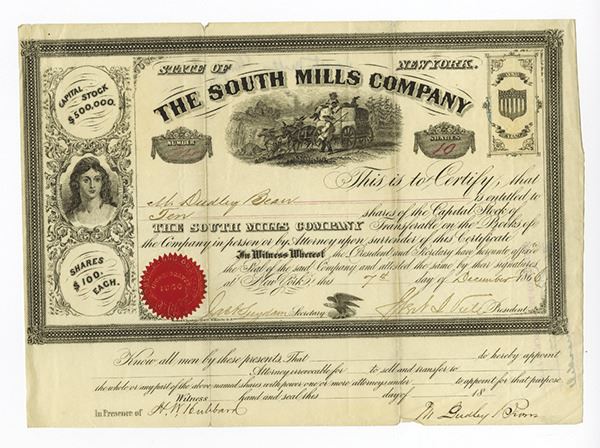 STATE OF NEW YORK.
THE SOUTH MILLS COMPANY
CAPITAL STOCK
$500,000.
NUMBER
SHARES
10
This is to Certify, that
M. Dudley Bean is entitled to
Ten shares of the Capital Stock of
THE SOUTH MILLS COMPANY Transferable on the Books of
the Company in person or by Attorney upon surrender of this Certificate
In Witness Whereof the President and Secretary have hereunto affixed
the Seal of the said Company and attested the same by their signatures
at New York, this 7th day of December 1866
Secretary
President
SHARES
$100.
EACH.
Know all men by these presents, That do hereby appoint
Attorney irrevocable for to sell and transfer to
the whole or any part of the above named shares with power one or more attorneys under to appoint for that purpose
Witness hand and seal this day of 18
In Presence of H. W. Hubbard
M Dudley Bean